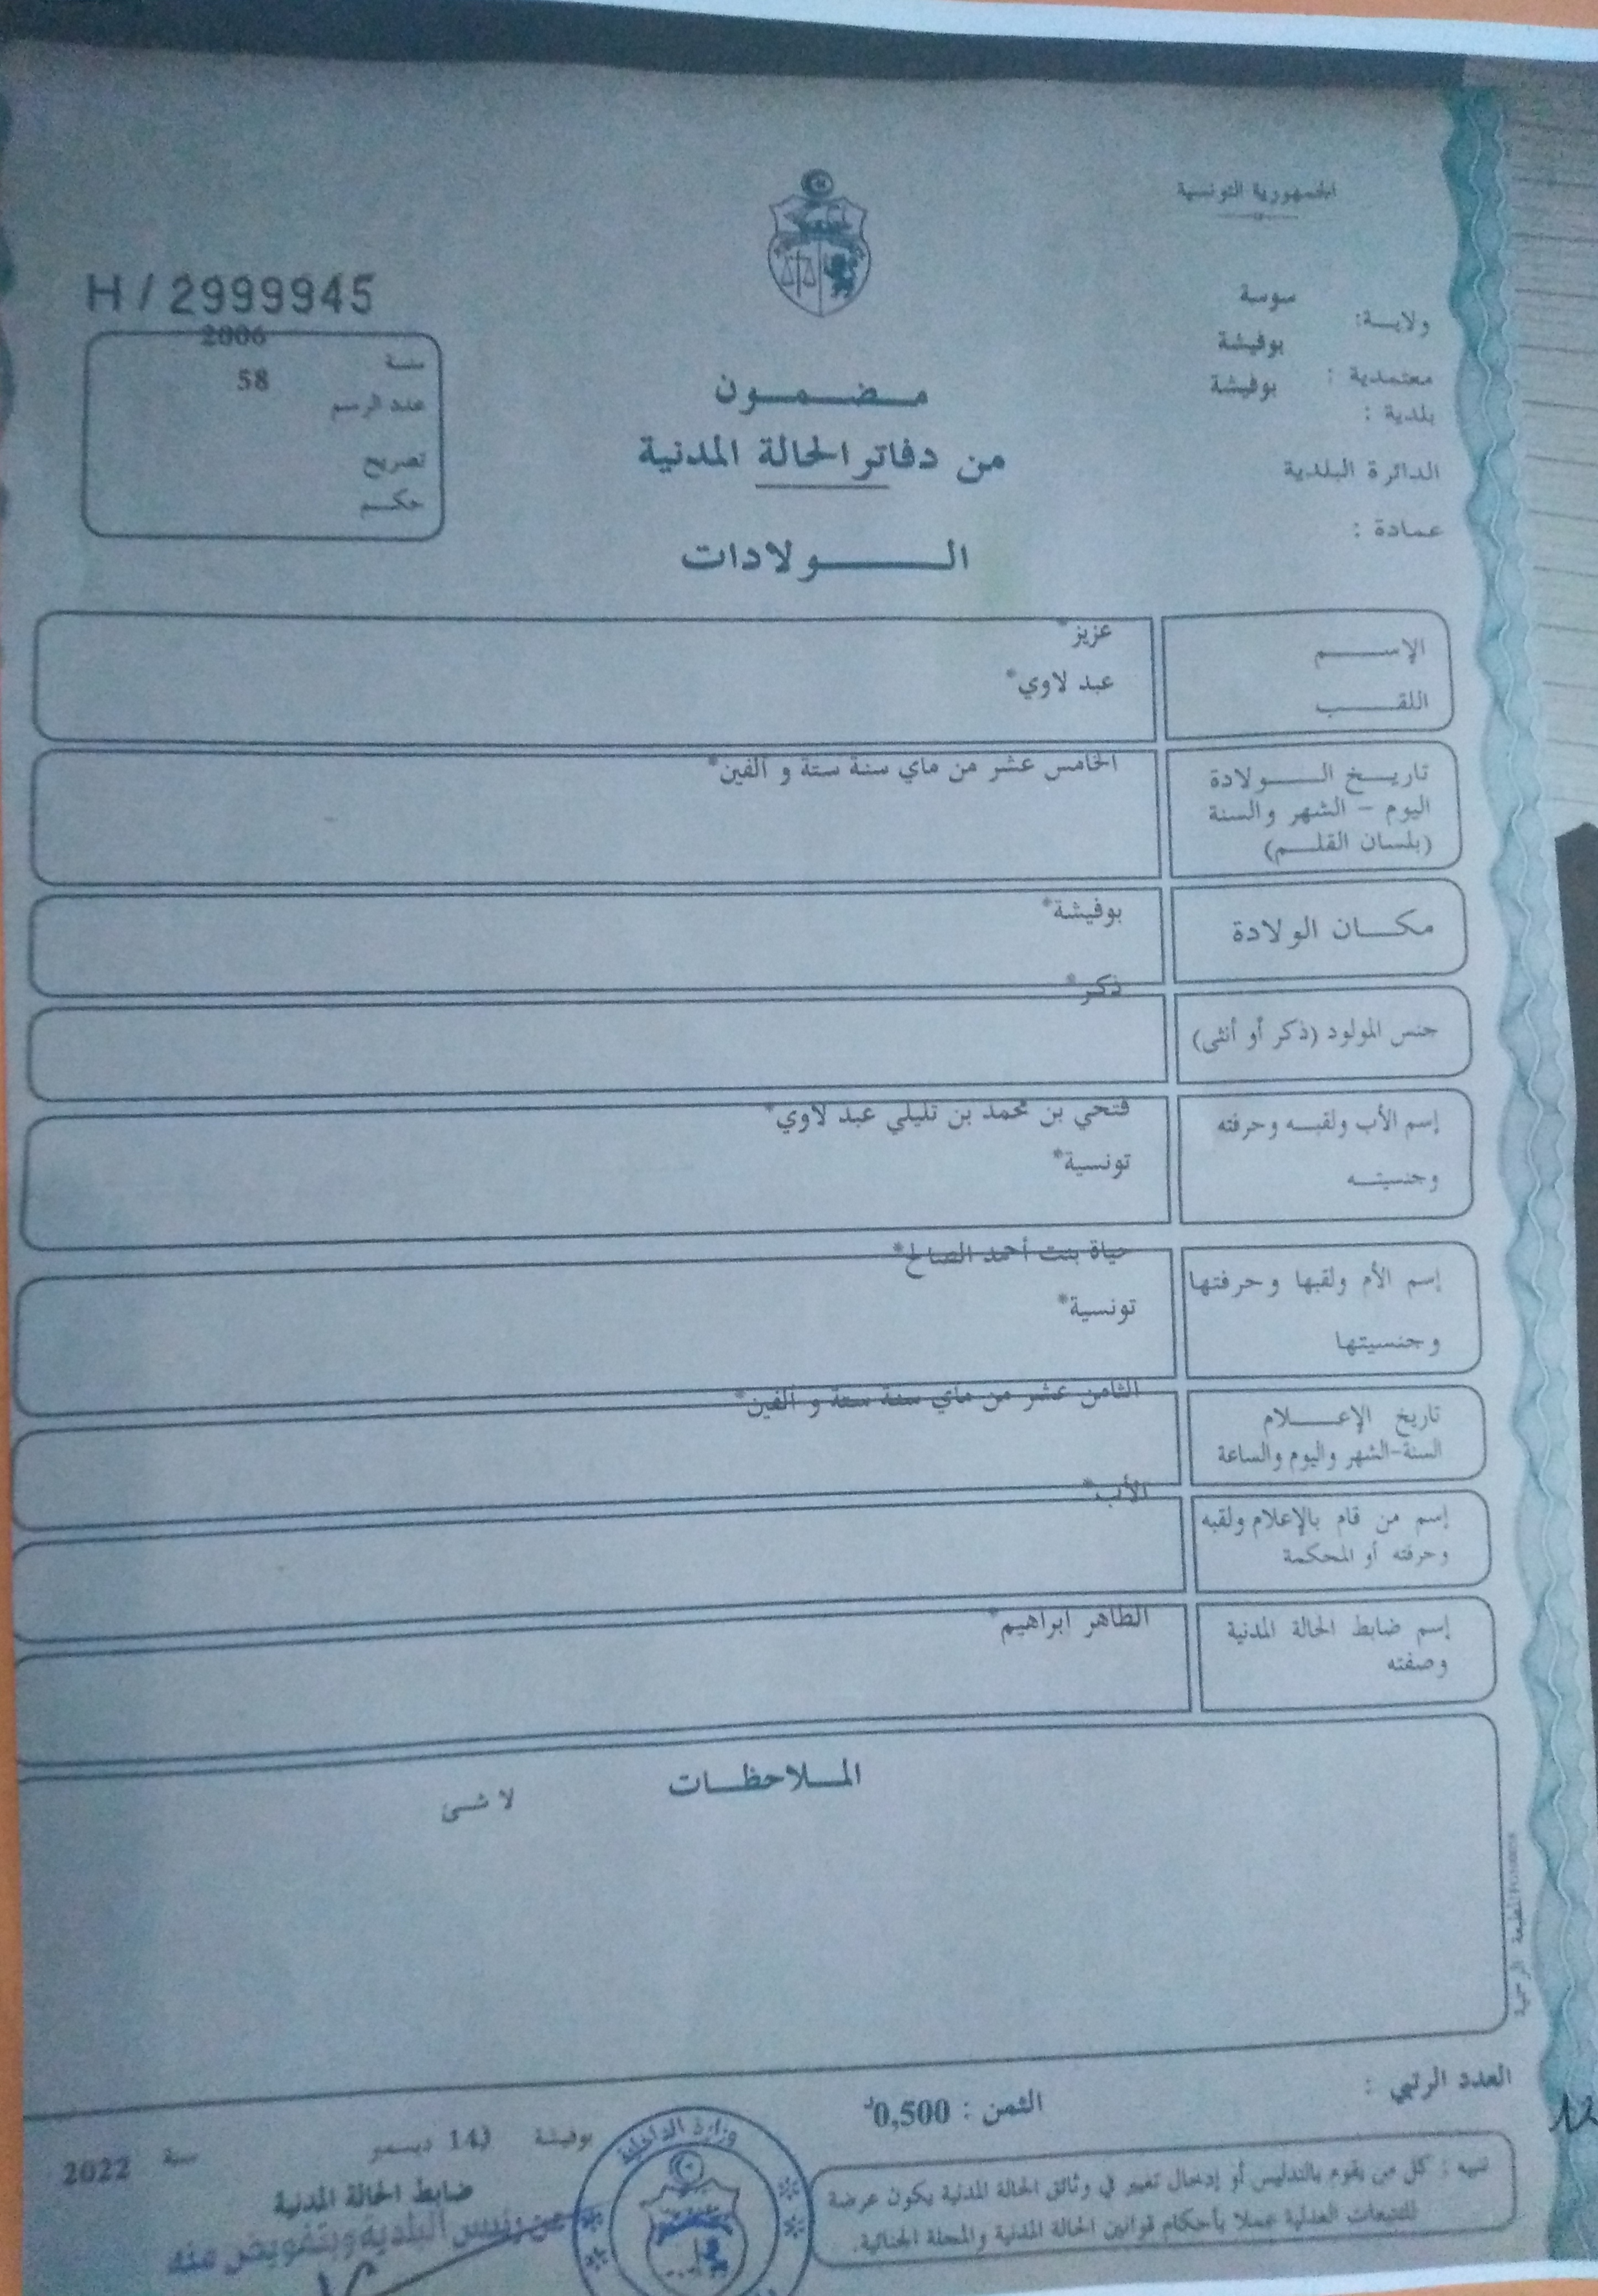 الجمهورية التونسية
ولايـة: سوسة
معتمدية : بوفيشة
بلدية : بوفيشة
الدائرة البلدية
عمادة :
H / 2999945
سنة 2006
عدد الرسم 58
تصريح
حكم
مضمون
من دفاتر الحالة المدنية
الولادات
الإسم عزيز*
اللقب عبد لاوي*
تاريخ الولادة الخامس عشر من ماي سنة ستة و ألفين*
اليوم - الشهر والسنة
(بلسان القلم)
مكان الولادة بوفيشة*
جنس المولود (ذكر أو أنثى) ذكر*
إسم الأب ولقبه وحرفته فتحي بن محمد بن تليلي عبد لاوي*
وجنسيته تونسية*
إسم الأم ولقبها وحرفتها حياة بنت أحمد الصالح*
وجنسيتها تونسية*
تاريخ الإعلام الثامن عشر من ماي سنة ستة و ألفين*
السنة-الشهر واليوم والساعة
إسم من قام بالإعلام ولقبه الأب*
وحرفته أو المحكمة
إسم ضابط الحالة المدنية الطاهر ابراهيم*
وصفته
الملاحظات
لا شئ
المطبعة الرسمية
العدد الرتبي :
الثمن : 0,500د
بوفيشة 14 ديسمبر سنة 2022
ضابط الحالة المدنية
عن رئيس البلدية وبتفويض منه
وزارة الداخلية
تنبيه : كل من يقوم بالتدليس أو إدخال تغيير في وثائق الحالة المدنية يكون عرضة
للتتبعات العدلية عملا بأحكام قوانين الحالة المدنية والمجلة الجنائية.